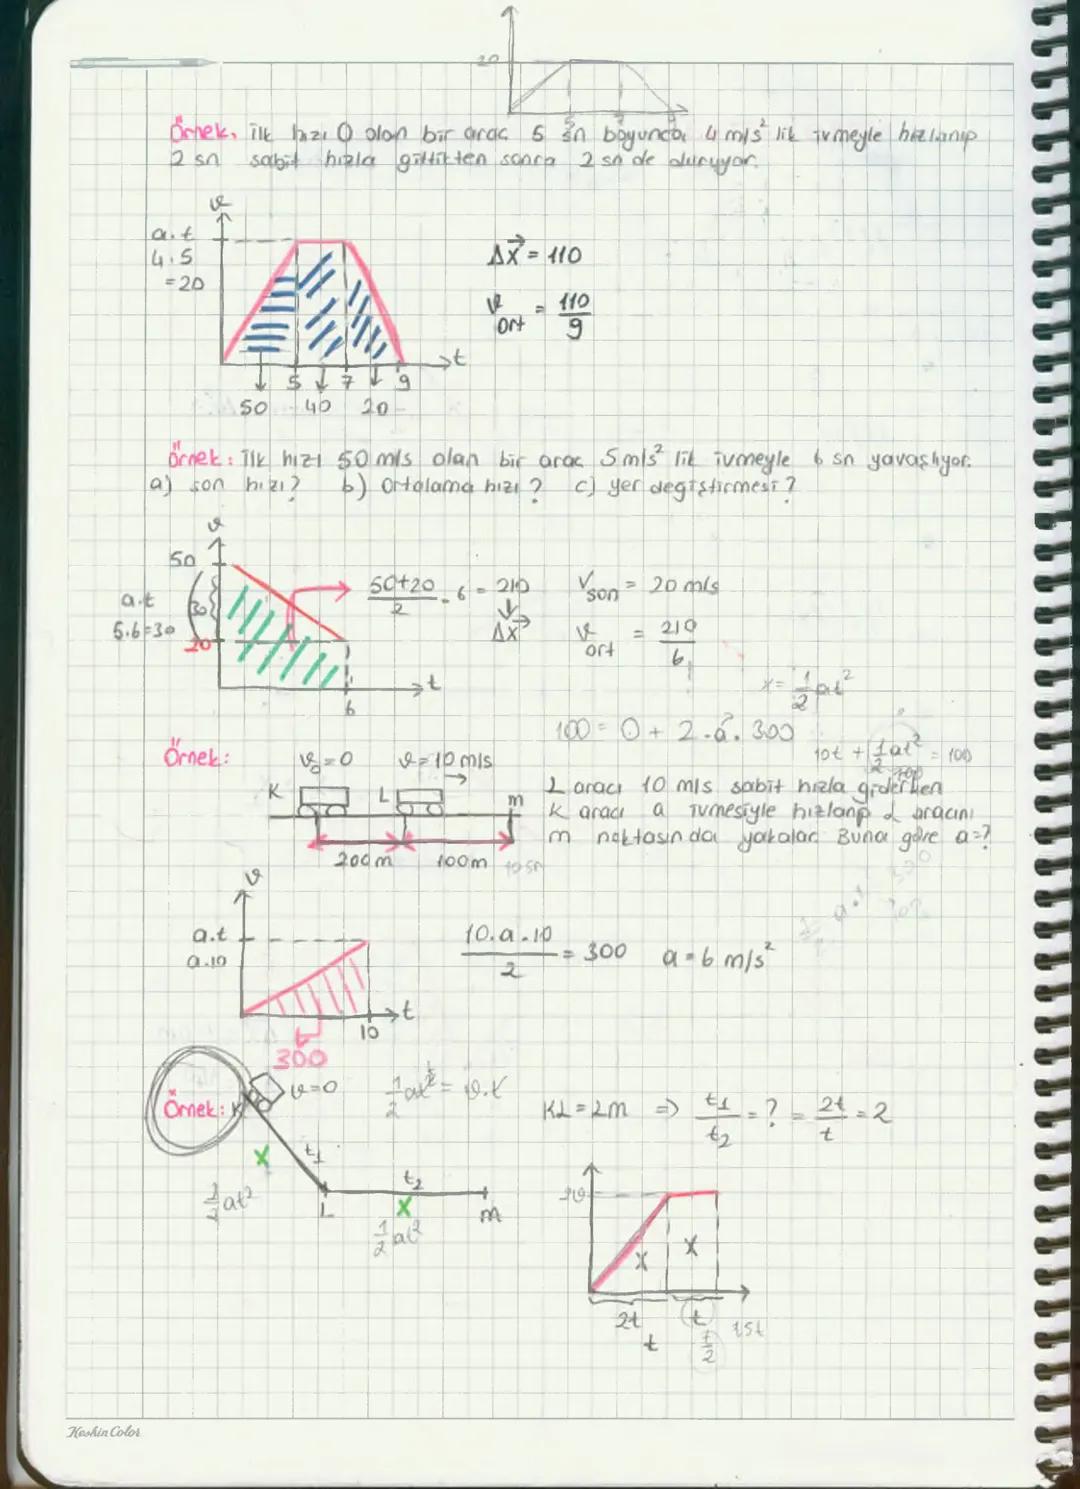 20
Örnek, ilk hızı 0 olan bir araç 5 sn boyunca 4 m/s² lik ivmeyle hızlanıp
2 sn sabit hızla gittikten sonra 2 sn de duruyor.
v
a.t
4.5
=20
t
5 7 9
50 40 20
Δx = 110
v ort = 110/9
Örnek: ilk hızı 50 m/s olan bir araç 5 m/s² lik ivmeyle 6 sn yavaşlıyor.
a) son hızı? b) Ortalama hızı? c) yer değiştirmesi?
v
50
30
a.t
5.6=30
20
6
t
50+20/2 . 6 = 210
Δx
Vson = 20 m/s
v ort = 210/6
x = 1/2 at²
100 = 0 + 2.a. 300
10t + 1/2 at² = 100
Örnek:
v₀=0 v=10 m/s
K L m
200m 100m 10 sn
L aracı 10 m/s sabit hızla giderken
K aracı a ivmesiyle hızlanıp L aracını
m noktasında yakalar. Buna göre a=?
v
a.t
a.10
10
t
300
10.a.10/2 = 300 a = 6 m/s²
Örnek: K
v=0
1/2 at² = v.t
KL = LM ⇒ t₁/t₂ = ? = 2t/t = 2
x t₁
1/2 at²
L
t₂
x
1/2 at²
m
x x
2t t
t t/2